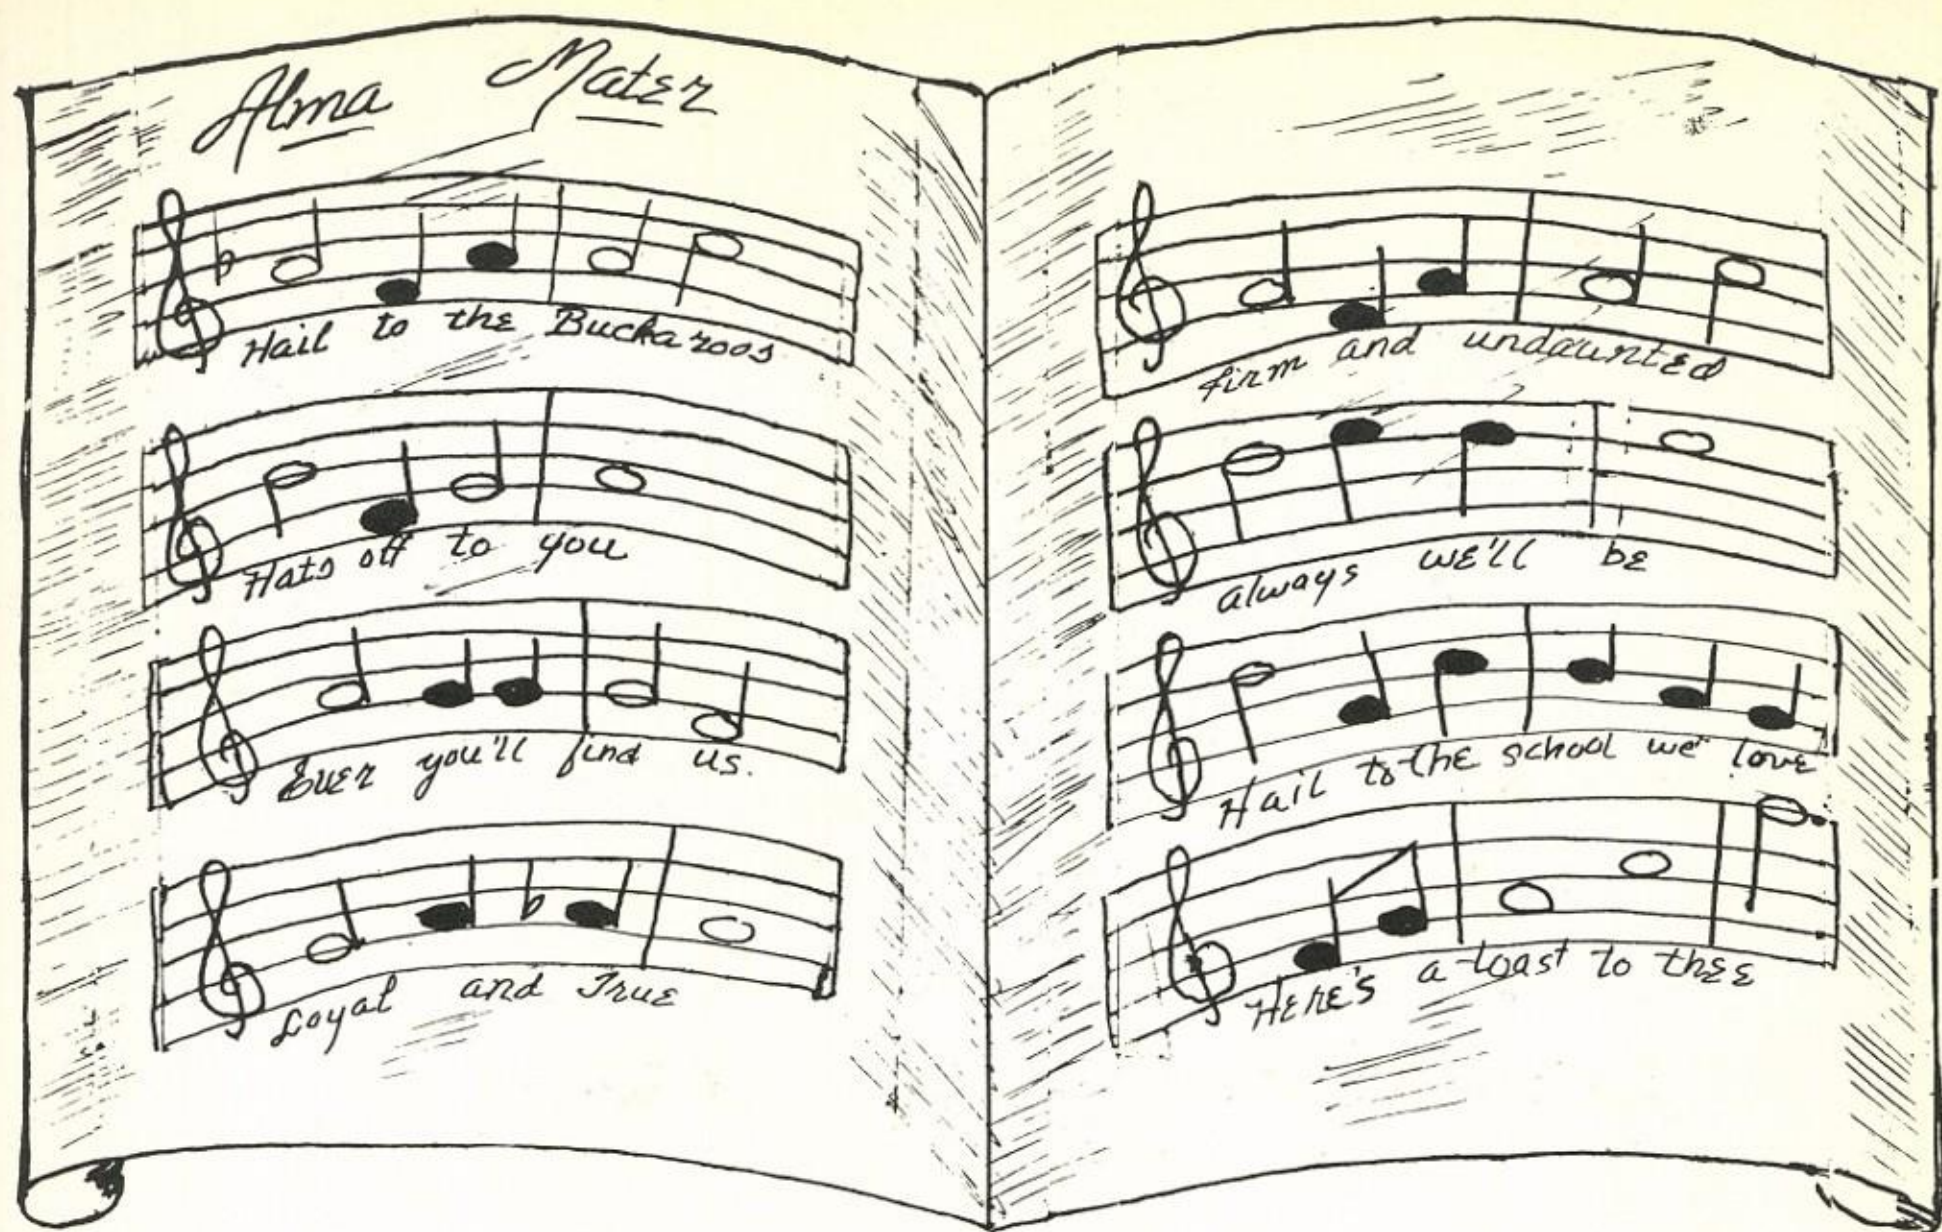 Alma Mater
Hail to the Buckaroos
Hats off to you
Ever you'll find us.
Loyal and True
firm and undaunted
always we'll be
Hail to the school we love
Here's a toast to thee